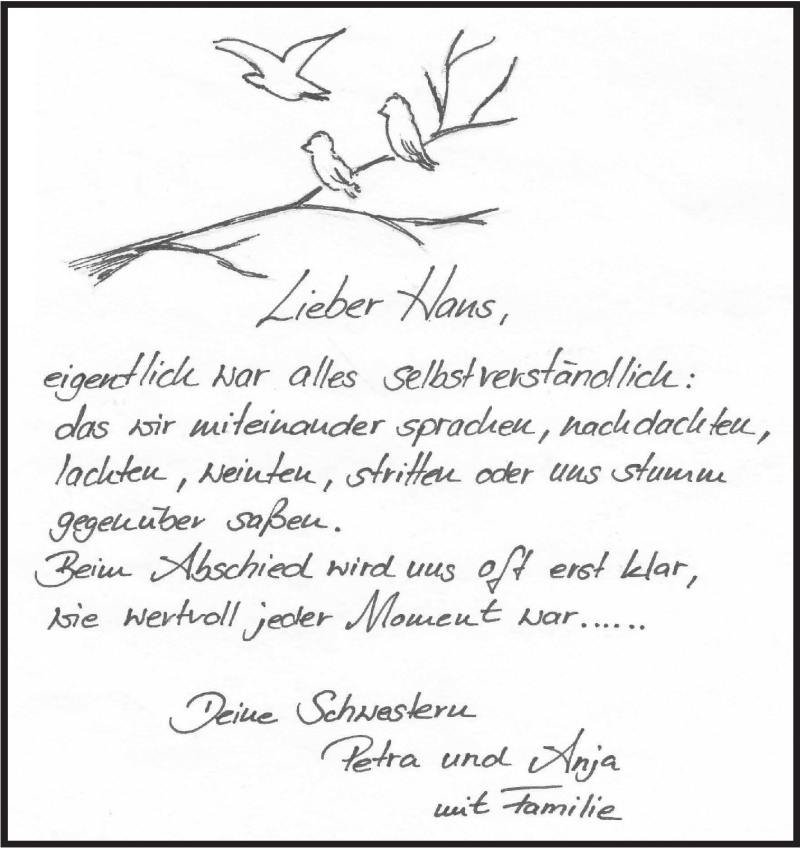 Lieber Hans,
eigentlich war alles selbstverständlich:
das wir miteinander sprachen, nachdachten,
lachten, weinten, stritten oder uns stumm
gegenüber saßen.
Beim Abschied wird uns oft erst klar,
wie wertvoll jeder Moment war......
Deine Schwestern
Petra und Anja
mit Familie